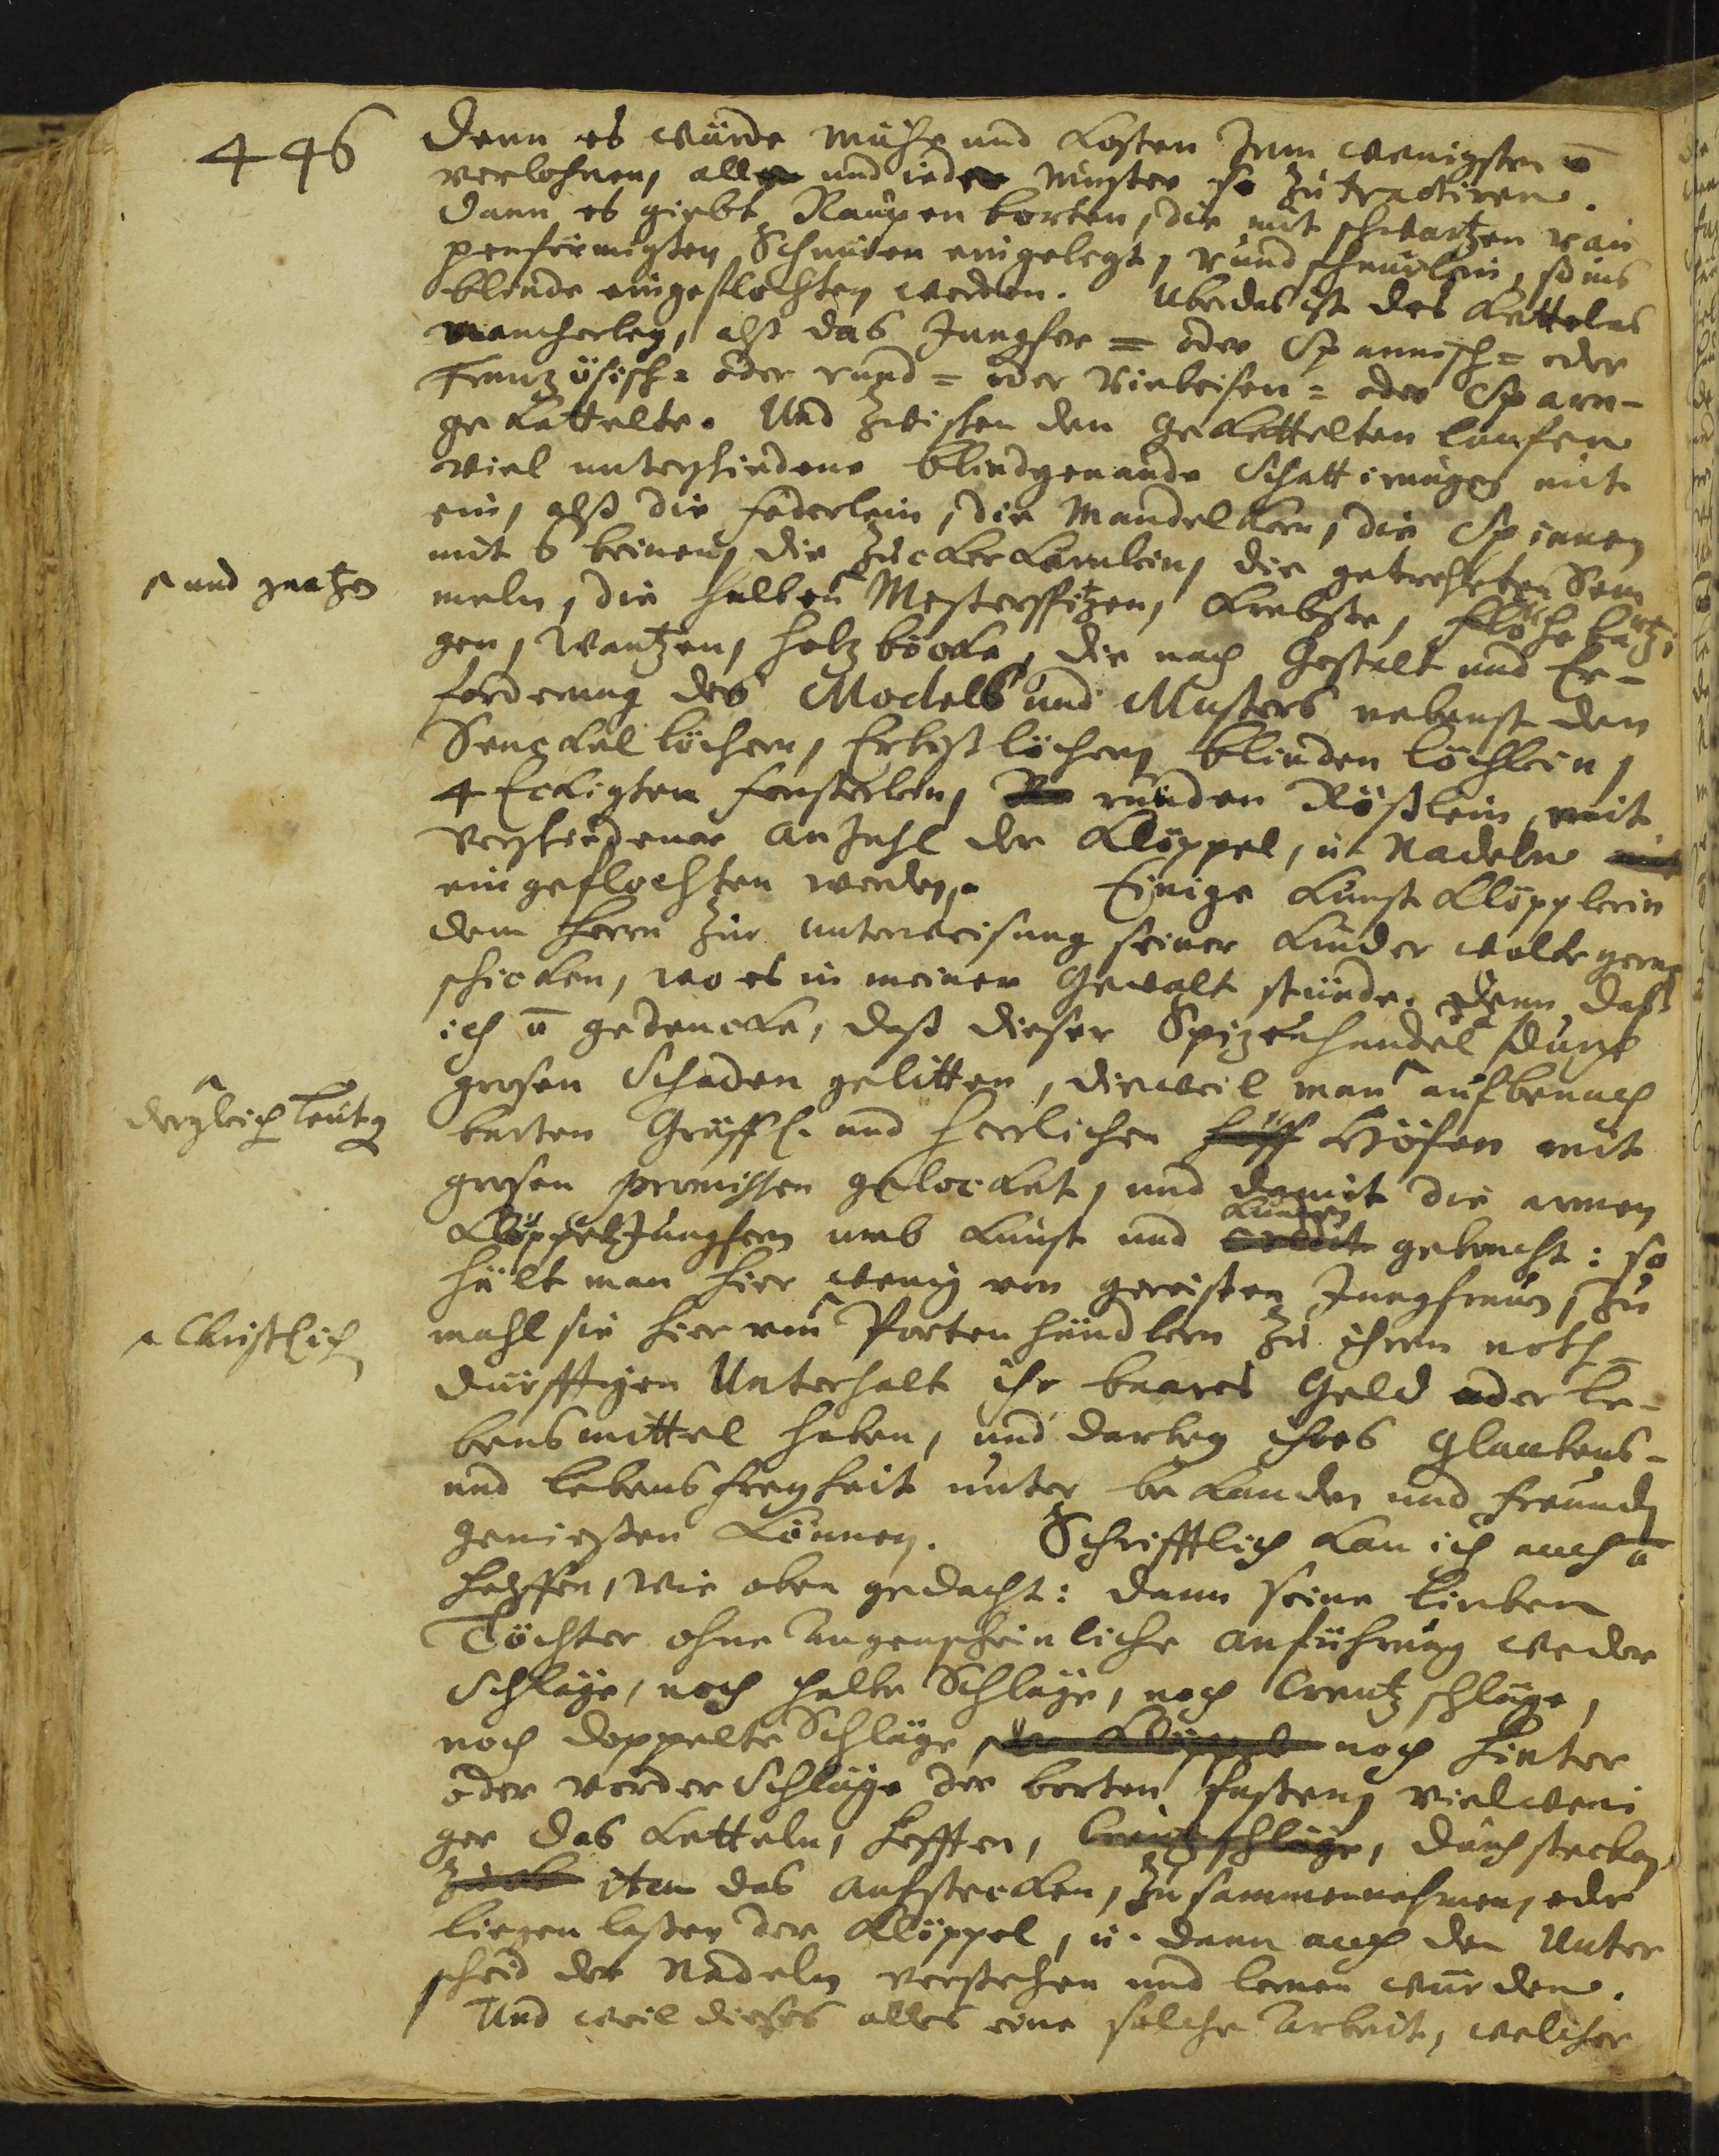 446
Denn es würde mühe und kosten Im wenigsten ū
verlohnen, alle und iede Muster so zu tractiren.
Dann es giebt Raupen borten, die mit schwartzen rau
penförmigsten Schnüren eingelegt, rund schnürlein, so ins
blinde eingeflochten werden. Uberdas ist des Kettelns
mancherley, alß das Jungfer = oder Spannisch = oder
Französisch = oder rund = oder = oder Sparn-
gekettelte. Und zwischen den geketelten lauffen
viel unterschiedene blindgenande Schattirungen mit
ein, alß die federlein, die Mandelkern, die Spinnen
mit 6 beinen, die Zuckerkernlein, die gedrehten Sem
meln, die halben Messerspitzen, Krebse, Flöhe
^ und gantzen
gen, Wantzen, holtzböcke, die nach Gestalt und Er-
forderung des Models und Musters nebenst den
Senckellöchern, Erbislöchern, blinden löchlein,
4 Eckigten fensterlein, runden Rößlein, mit
verschiedener Anzahl der Klöppel, u. Nadeln
eingeflochten werden. Einige Kunst Klöpplerin
dem Herrn zur unterweisung seiner Kinder wolte gerne
schicken, wo es in meiner Gewalt stünde. Denn daß
ich ū gedencke, daß dieser Spizenhandel dadurch
grosen Schaden gelitten, dieweil man ^ auf benach
^ dergleich leute
barten Gräffl. und Herrlichen Höfen mit
grosen promissen gelocket, und damit die armen
KlöppelJungfern umb Kunst und Kunden gebracht: so
hält man hier wenig von gereisten Jungfrauen, Zu
mahl sie hier von ^ Porten händlern zu ihren noth-
^ Christlich
dürfftigen Unterhalt ihr baares Geld oder le-
bensmittel haben, und darbey ihres Glaubens-
und lebens freyheit unter bekanden und freunden
geniessen können. Schrifftlich kan ich auch ū
helffen, wie oben gedacht: dann seine lieben
Töchter ohne augenscheinliche anführung weder
Schläge, noch halbe Schläge, noch Creutzschläge,
noch doppelte Schläge, der Klöppel noch hinter
oder vorder Schläge der borten fassen, vielweni
ger das Ketteln, hefften, Creutzschläge, durchstecken,
item das aufstecken, zusammennehmen, oder
liegen lassen der Klöppel, u. dann auch den Unter
scheid der Nadeln verstehen und lernen würden.
Und weil dieses alles eine solche Arbeit, welcher